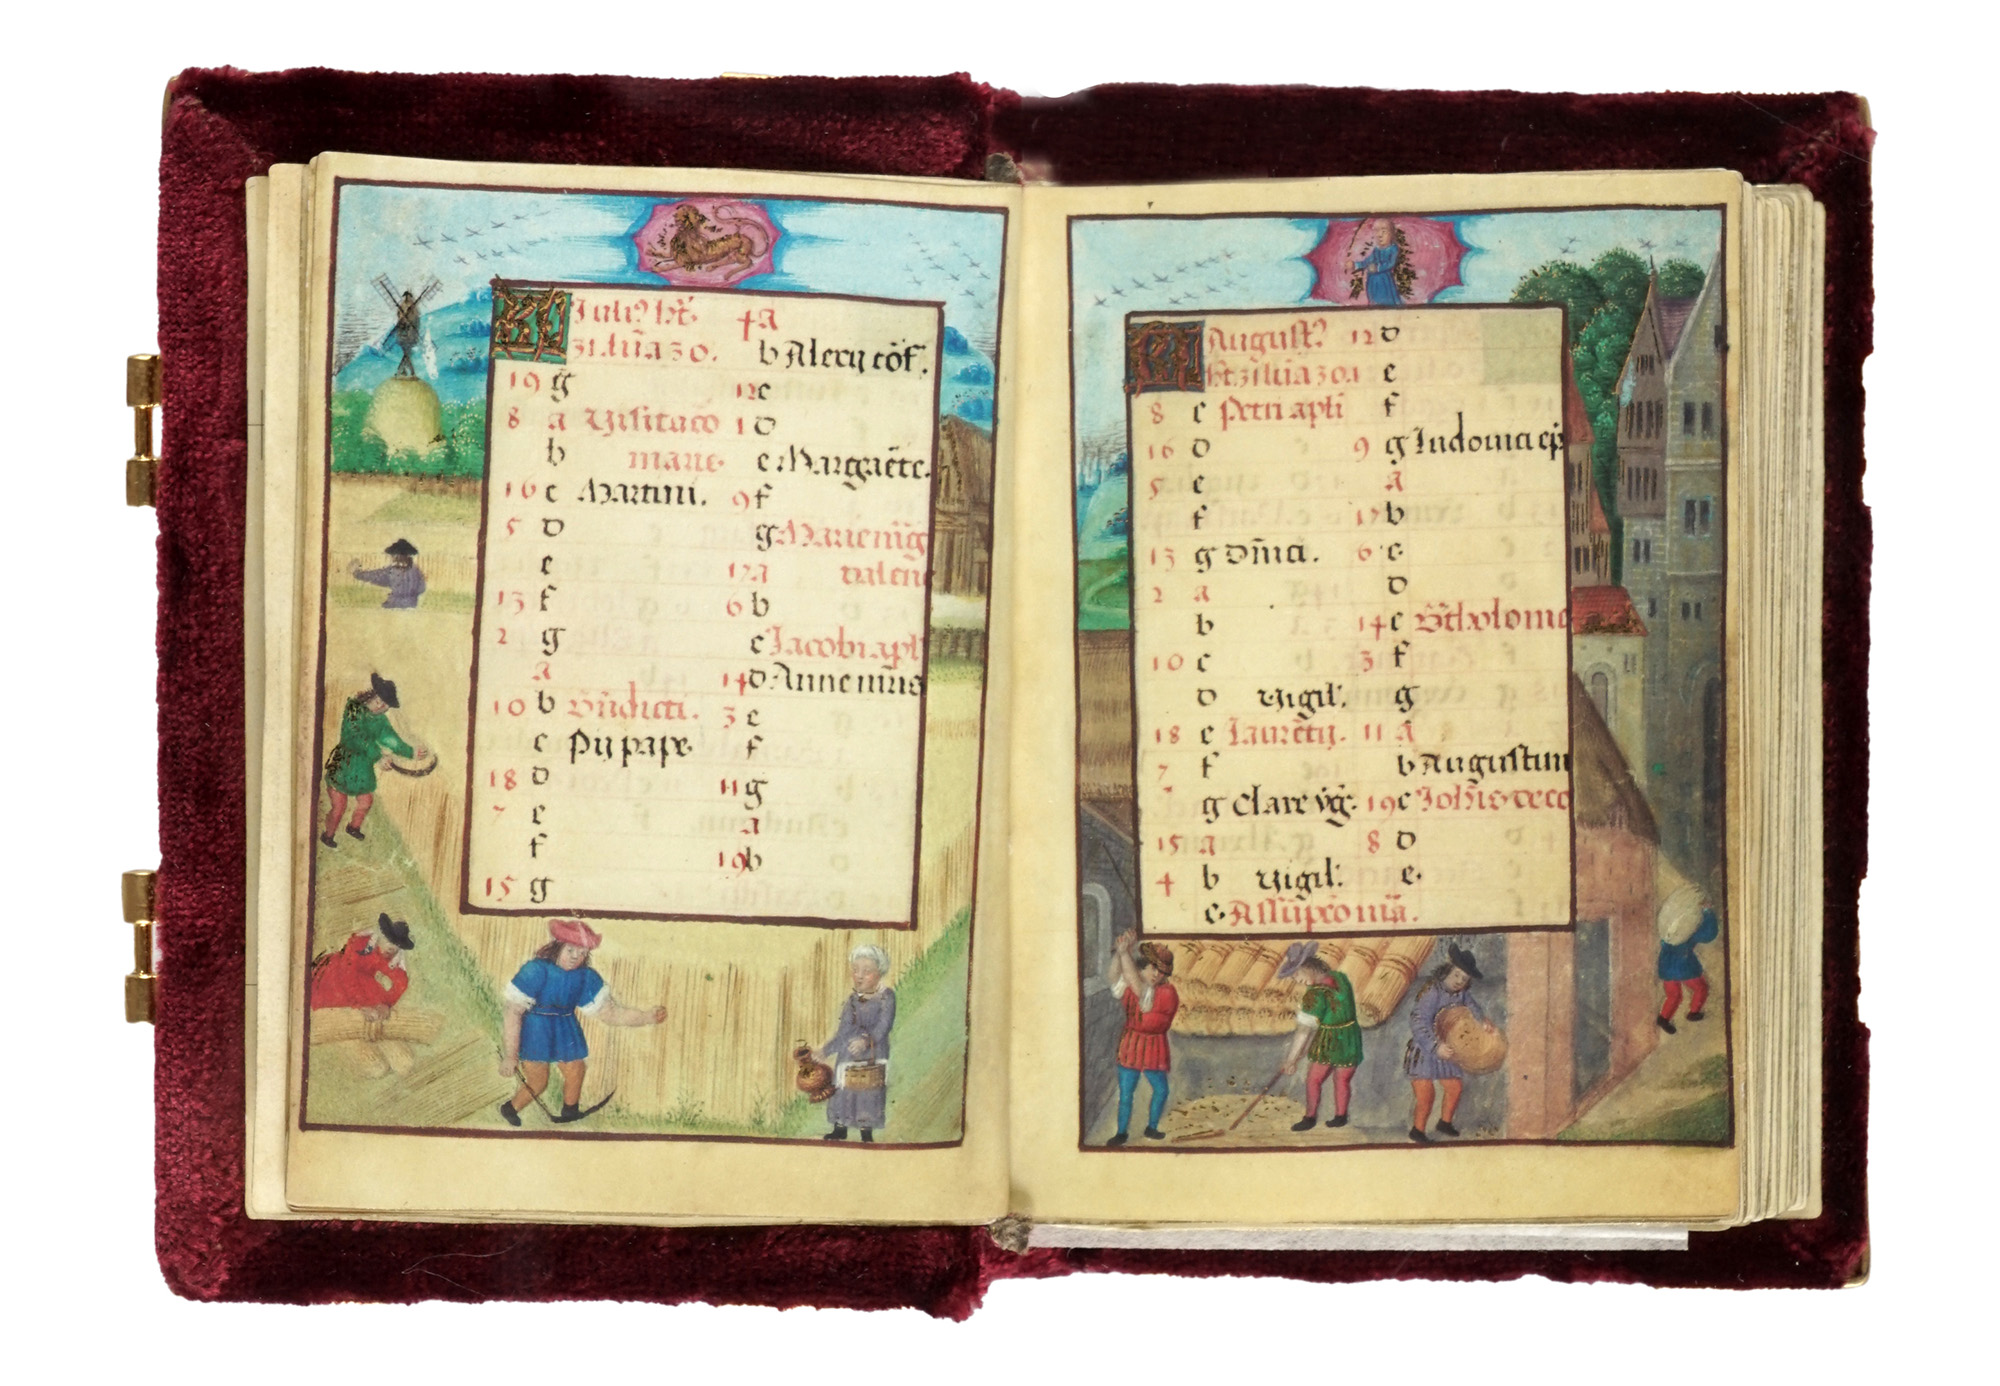 KL Juli⁹ ht̄.
31. lūa 30.
19 g
8 a Visitaco
b marie.
16 c Martini.
5 D
e
13 f
2 g
a
10 b Bn̄dicti.
c Pij pape.
18 D
7 e
f
15 g
4 a
b Alexij cōf.
12 c
1 D
e Margarēte.
9 f
g Marie mag
17 a dalene
6 b
c Jacobi apl
14 D Anne m̄ris
3 e
f
11 g
a
19 b
KL August⁹
ht̄ 31 lūa 30.
8 c Petri apl̄i
16 D
5 e
f
13 g Dn̄ici.
2 a
b
10 c
D Vigil'.
18 e Laurētij.
7 f
g Clare v̄g.
15 a
4 b Vigil'.
c Assūpcō mā.
12 D
e
f
9 g Ludouici ep̄
a
17 b
6 c
D
14 e B̄tholome
3 f
g
11 a
b Augustim
19 c Joh̄is deco
8 D
e